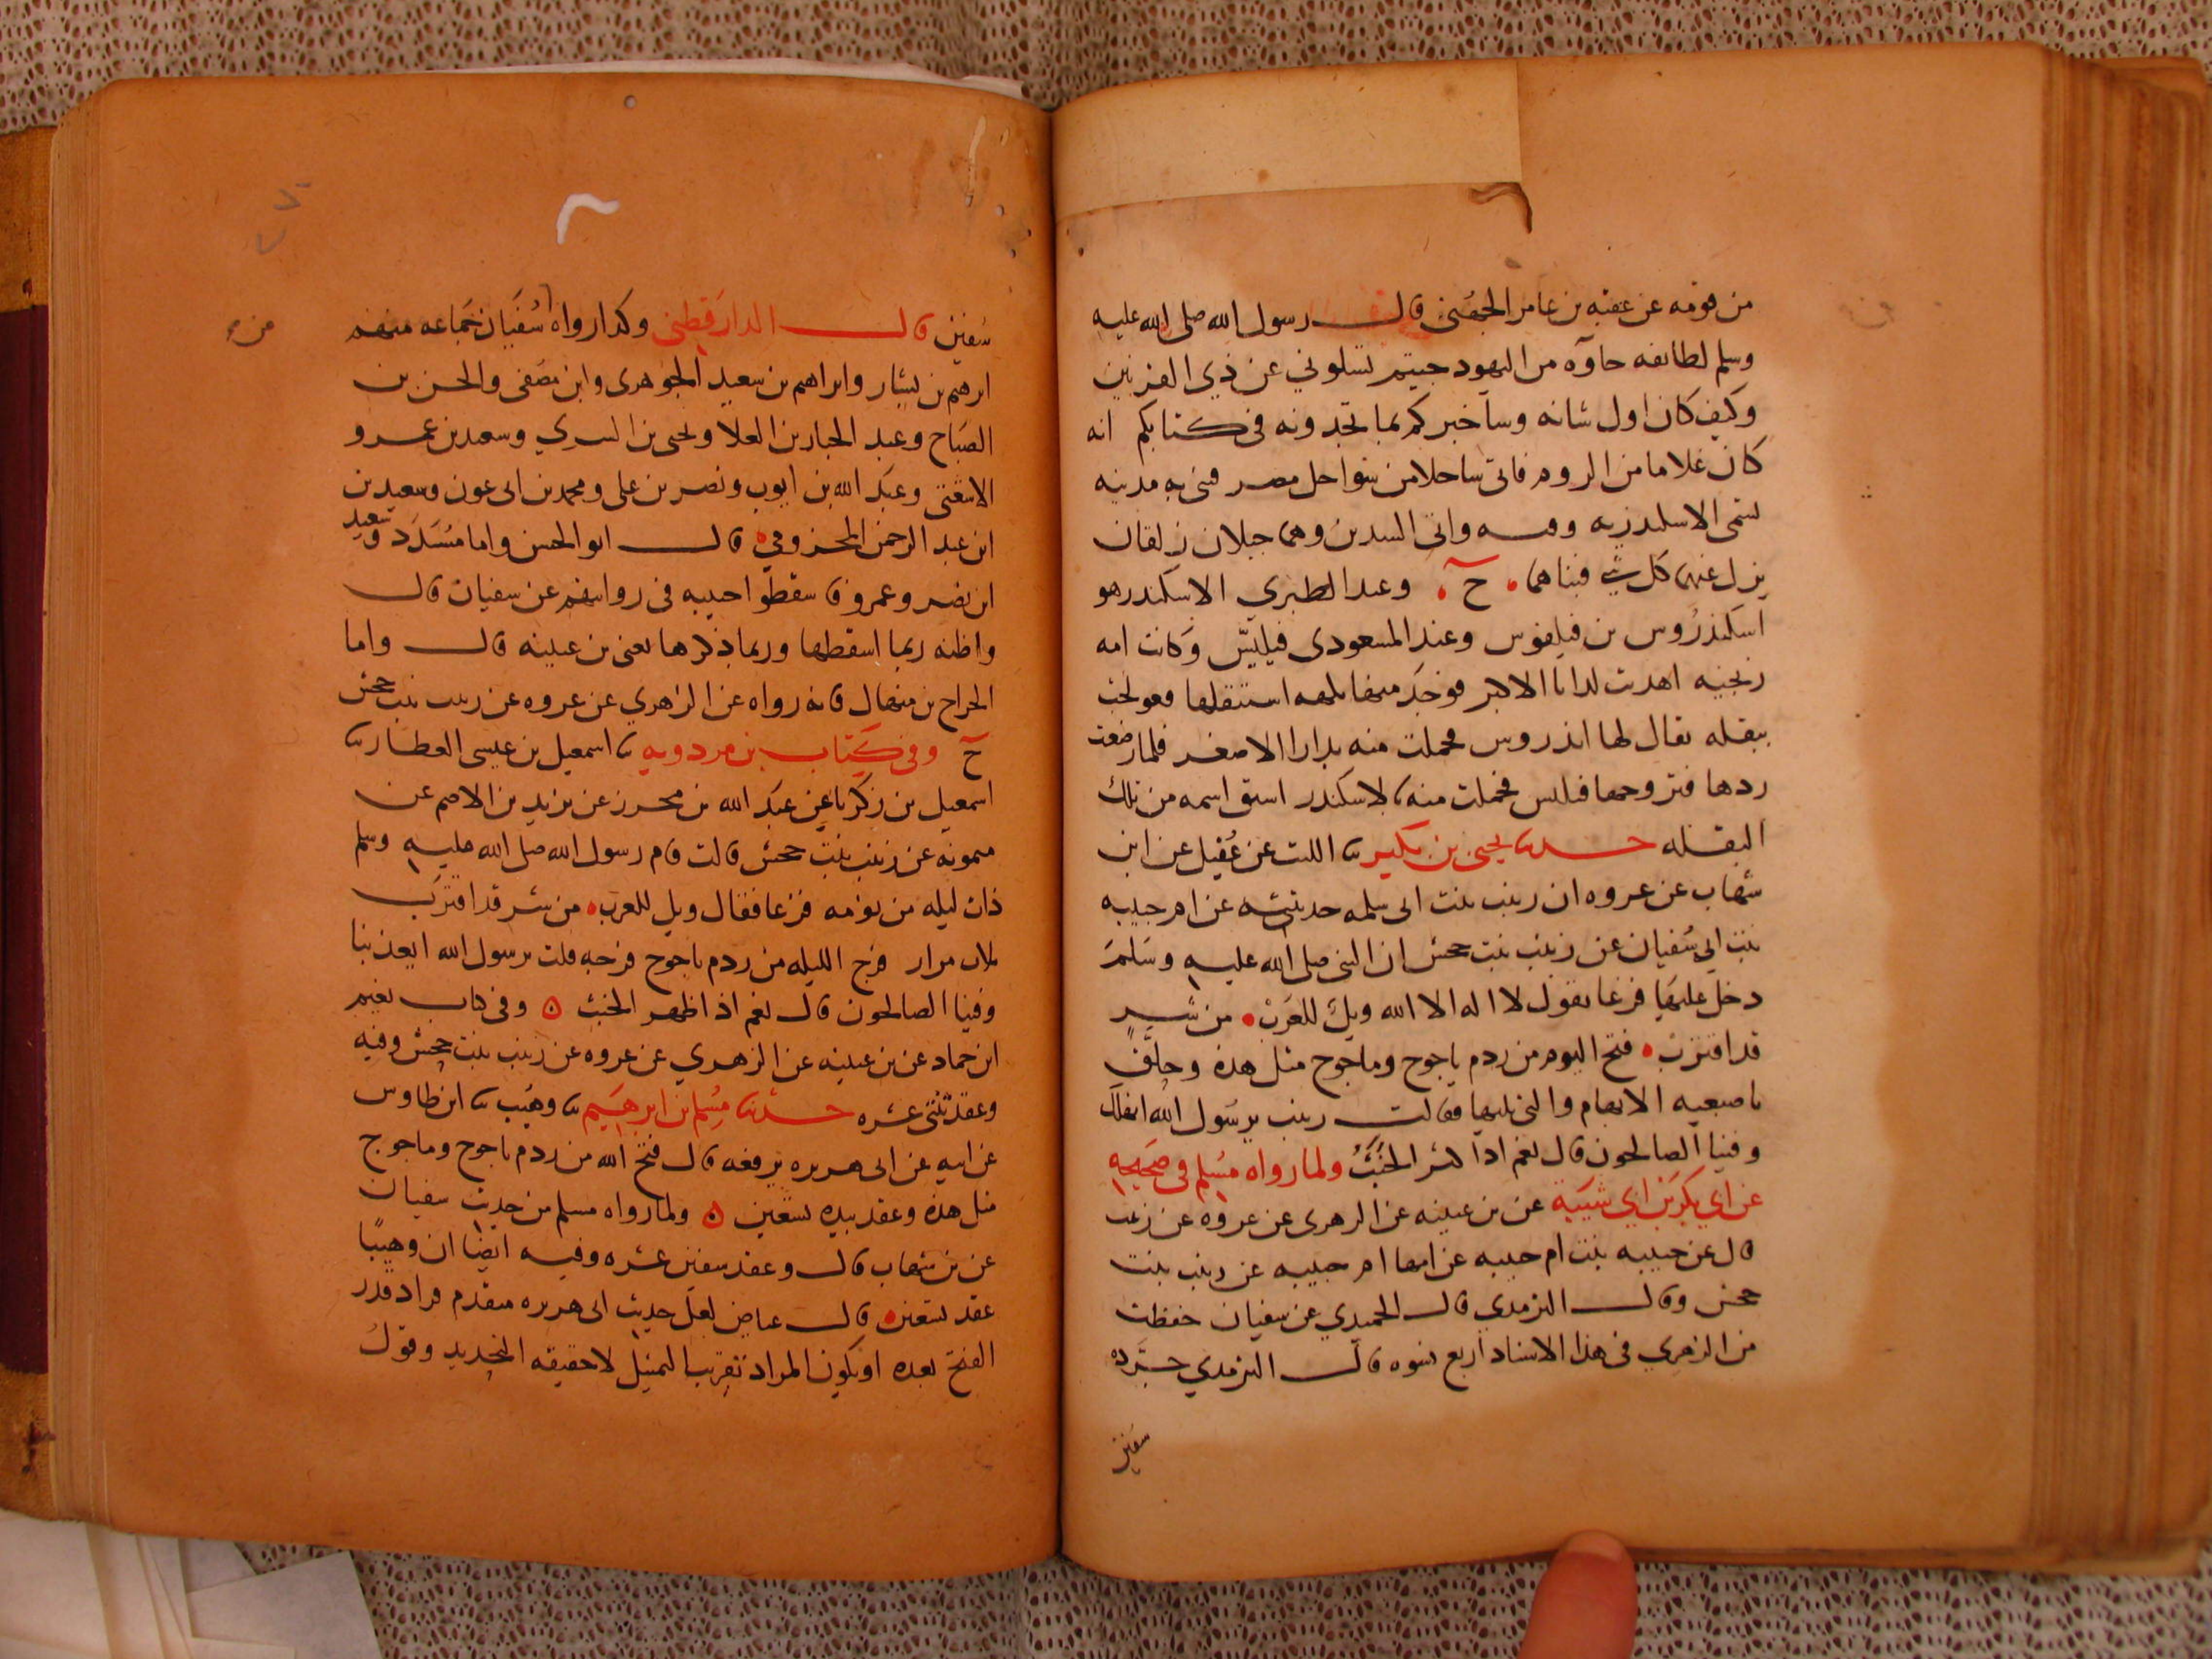 من قومه عن عقبه بن عامر الجهني قال رسول الله صلى الله عليه
وسلم لطايفه جاوه من اليهود جيتم تسلوني عن ذي القرنين
وكيف كان اول شانه وساخبركم بما تجدونه في كتابكم انه
كان غلاما من الروم فاتى ساحلا من سواحل مصر فبنى به مدينه
تسمى الاسكندريه وفيه واتى السدين وهما جبلان زلقان
يزل عنهما كل شي فبناهما ح وعند الطبري الاسكندر هو
اسكندروس بن فيلفوس وعند المسعودي فيلبس وكانت امه
زنجيه اهدت لدارا الاكبر فوجد منها نكهه استثقلها فعولجت
ببقله يقال لها اندروس فحملت منه بدارا الاصغر فلما وضعت
ردها فتزوجها فيلبس فحملت منه بالاسكندر اشتق اسمه من تلك
البقله حدثنا يحيى بن بكير ثنا الليث عن عقيل عن ابن
شهاب عن عروه ان زينب بنت ابي سلمه حدثته عن ام حبيبه
بنت ابي سفيان عن زينب بنت جحش ان النبي صلى الله عليه وسلم
دخل عليها فزعا يقول لا اله الا الله ويل للعرب من شر
قد اقترب فتح اليوم من ردم ياجوج وماجوج مثل هذه وحلق
باصبعيه الابهام والتي تليها فقالت زينب يرسول الله انهلك
وفينا الصالحون قال نعم اذا كثر الخبث ولما رواه مسلم في صحيحه
عن ابي بكر بن ابي شيبة عن بن عيينه عن الزهري عن عروه عن زينب
قال عن حبيبه بنت ام حبيبه عن امها ام حبيبه عن زينب بنت
جحش وقال الترمذي قال الحميدي عن سفيان حفظت
من الزهري في هذا الاسناد اربع نسوه قال الترمذي جوده
سفين
سفين قال الدارقطني وكذا رواه سفيان جماعه منهم
ابرهيم بن بشار وابراهيم بن سعيد الجوهري وابن مصفى والحسن بن
الصباح وعبد الجبار بن العلا ويحيى بن السري وسعيد بن عمرو
الاشعثي وعبد الله بن ايوب ونصر بن علي ومحمد بن ابي عون وسعيد بن
ابن عبد الرحمن المخزومي قال ابو الحسن واما مسدد وسعيد
ابن نصر وعمرو فاسقطوا حبيبه في روايتهم عن سفيان قال
واظنه ربما اسقطها وربما ذكرها يعني بن عيينه قال واما
الحجاج بن منهال فانه رواه عن الزهري عن عروه عن زينب بنت جحش
ح وفي كتاب بن مردويه ثنا اسمعيل بن عيسى العطار ثنا
اسمعيل بن زكريا عن عبد الله بن محرز عن يزيد بن الاصم عن
ميمونه عن زينب بنت جحش قالت قام رسول الله صلى الله عليه وسلم
ذات ليله من نومه فزعا فقال ويل للعرب من شر قد اقترب
ثلاث مرار فرج الليله من ردم ياجوج فرجه قلت يرسول الله ايعذبنا
وفينا الصالحون قال نعم اذا ظهر الخبث ه وفي كتاب نعيم
ابن حماد عن بن عيينه عن الزهري عن عروه عن زينب بنت جحش وفيه
وعقد ثنتي عشره حدثنا مسلم بن ابرهيم ثنا وهيب ثنا ابن طاوس
عن ابيه عن ابي هريره يرفعه قال فتح الله من ردم ياجوج وماجوج
مثل هذه وعقد بيده تسعين ه ولما رواه مسلم من حديث سفيان
عن بن شهاب قال وعقد سفين عشره وفيه ايضا ان وهيبا
عقد تسعين قال عياض لعل حديث ابي هريره متقدم فزاد قدر
الفتح بعده او يكون المراد تقريب التمثيل لا حقيقه التحديد وقول